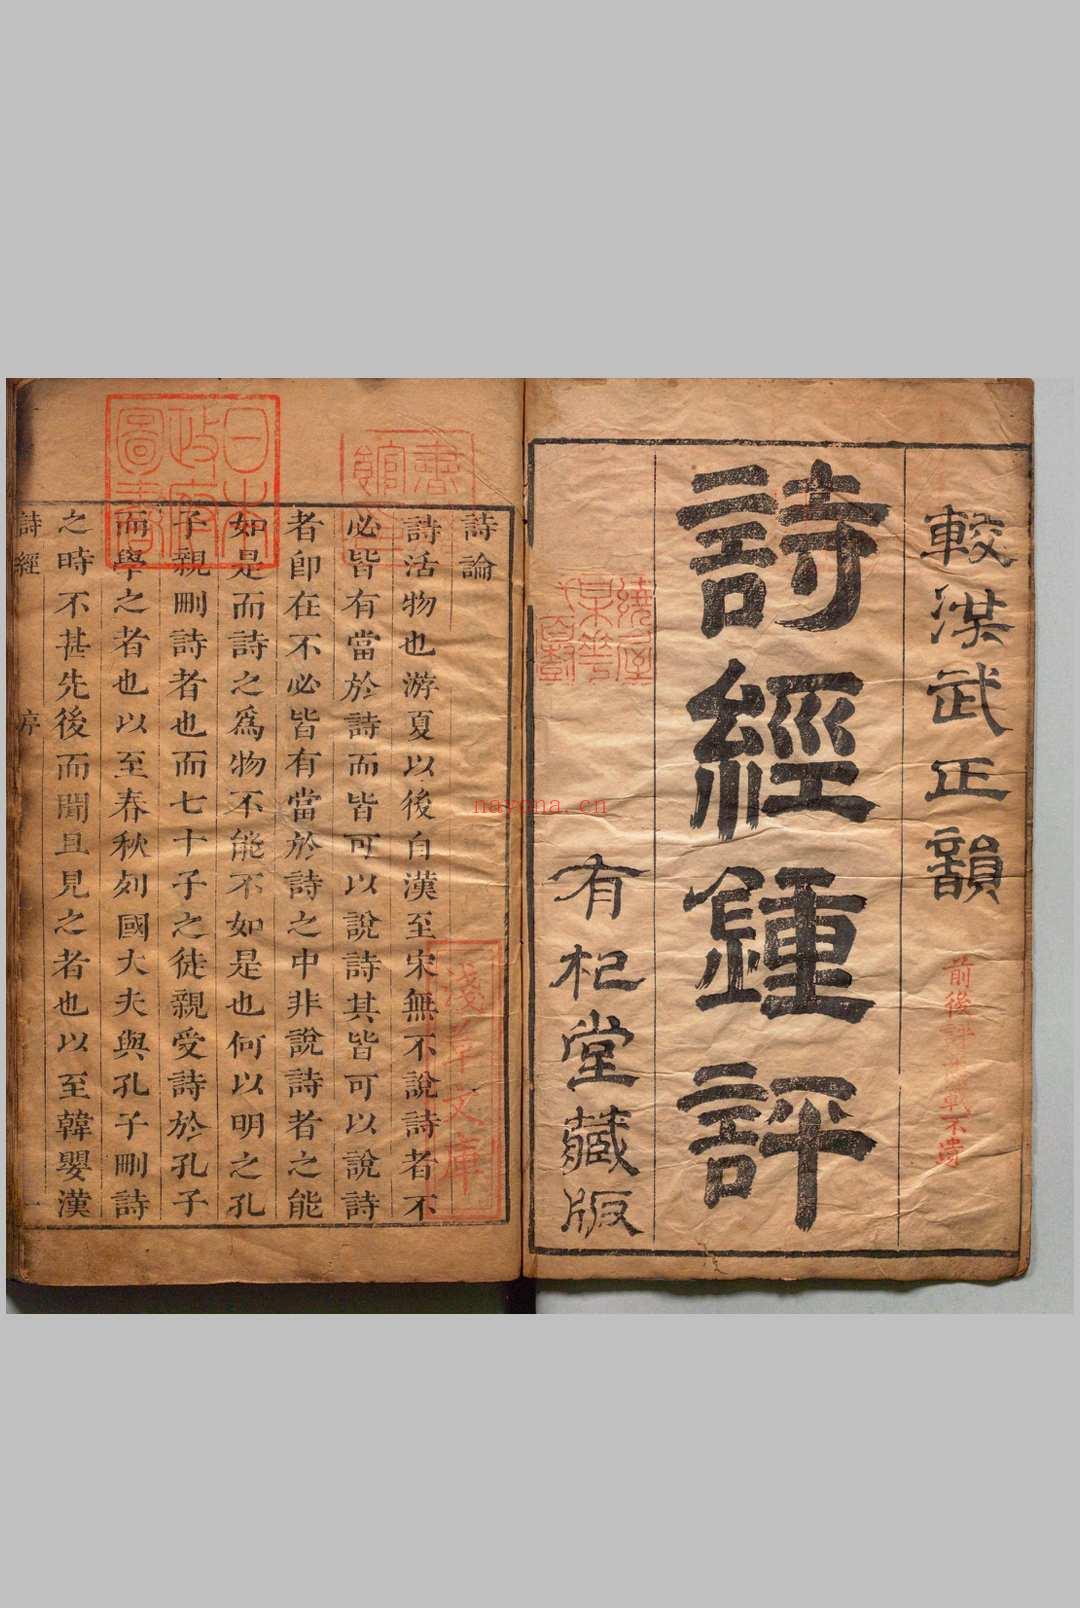 較洪武正韻
詩經鍾評
有杞堂藏版
詩論
詩活物也游夏以後自漢至宋無不說詩者不
必皆有當於詩而皆可以說詩其皆可以說詩
者即在不必皆有當於詩之中非說詩者之能
如是而詩之爲物不能不如是也何以明之孔
子親刪詩者也而七十子之徒親受詩於孔子
而學之者也以至春秋列國大夫與孔子刪詩
之時不甚先後而聞且見之者也以至韓嬰漢
詩經 序 一
日本政府圖書
淺草文庫
nayona.cn